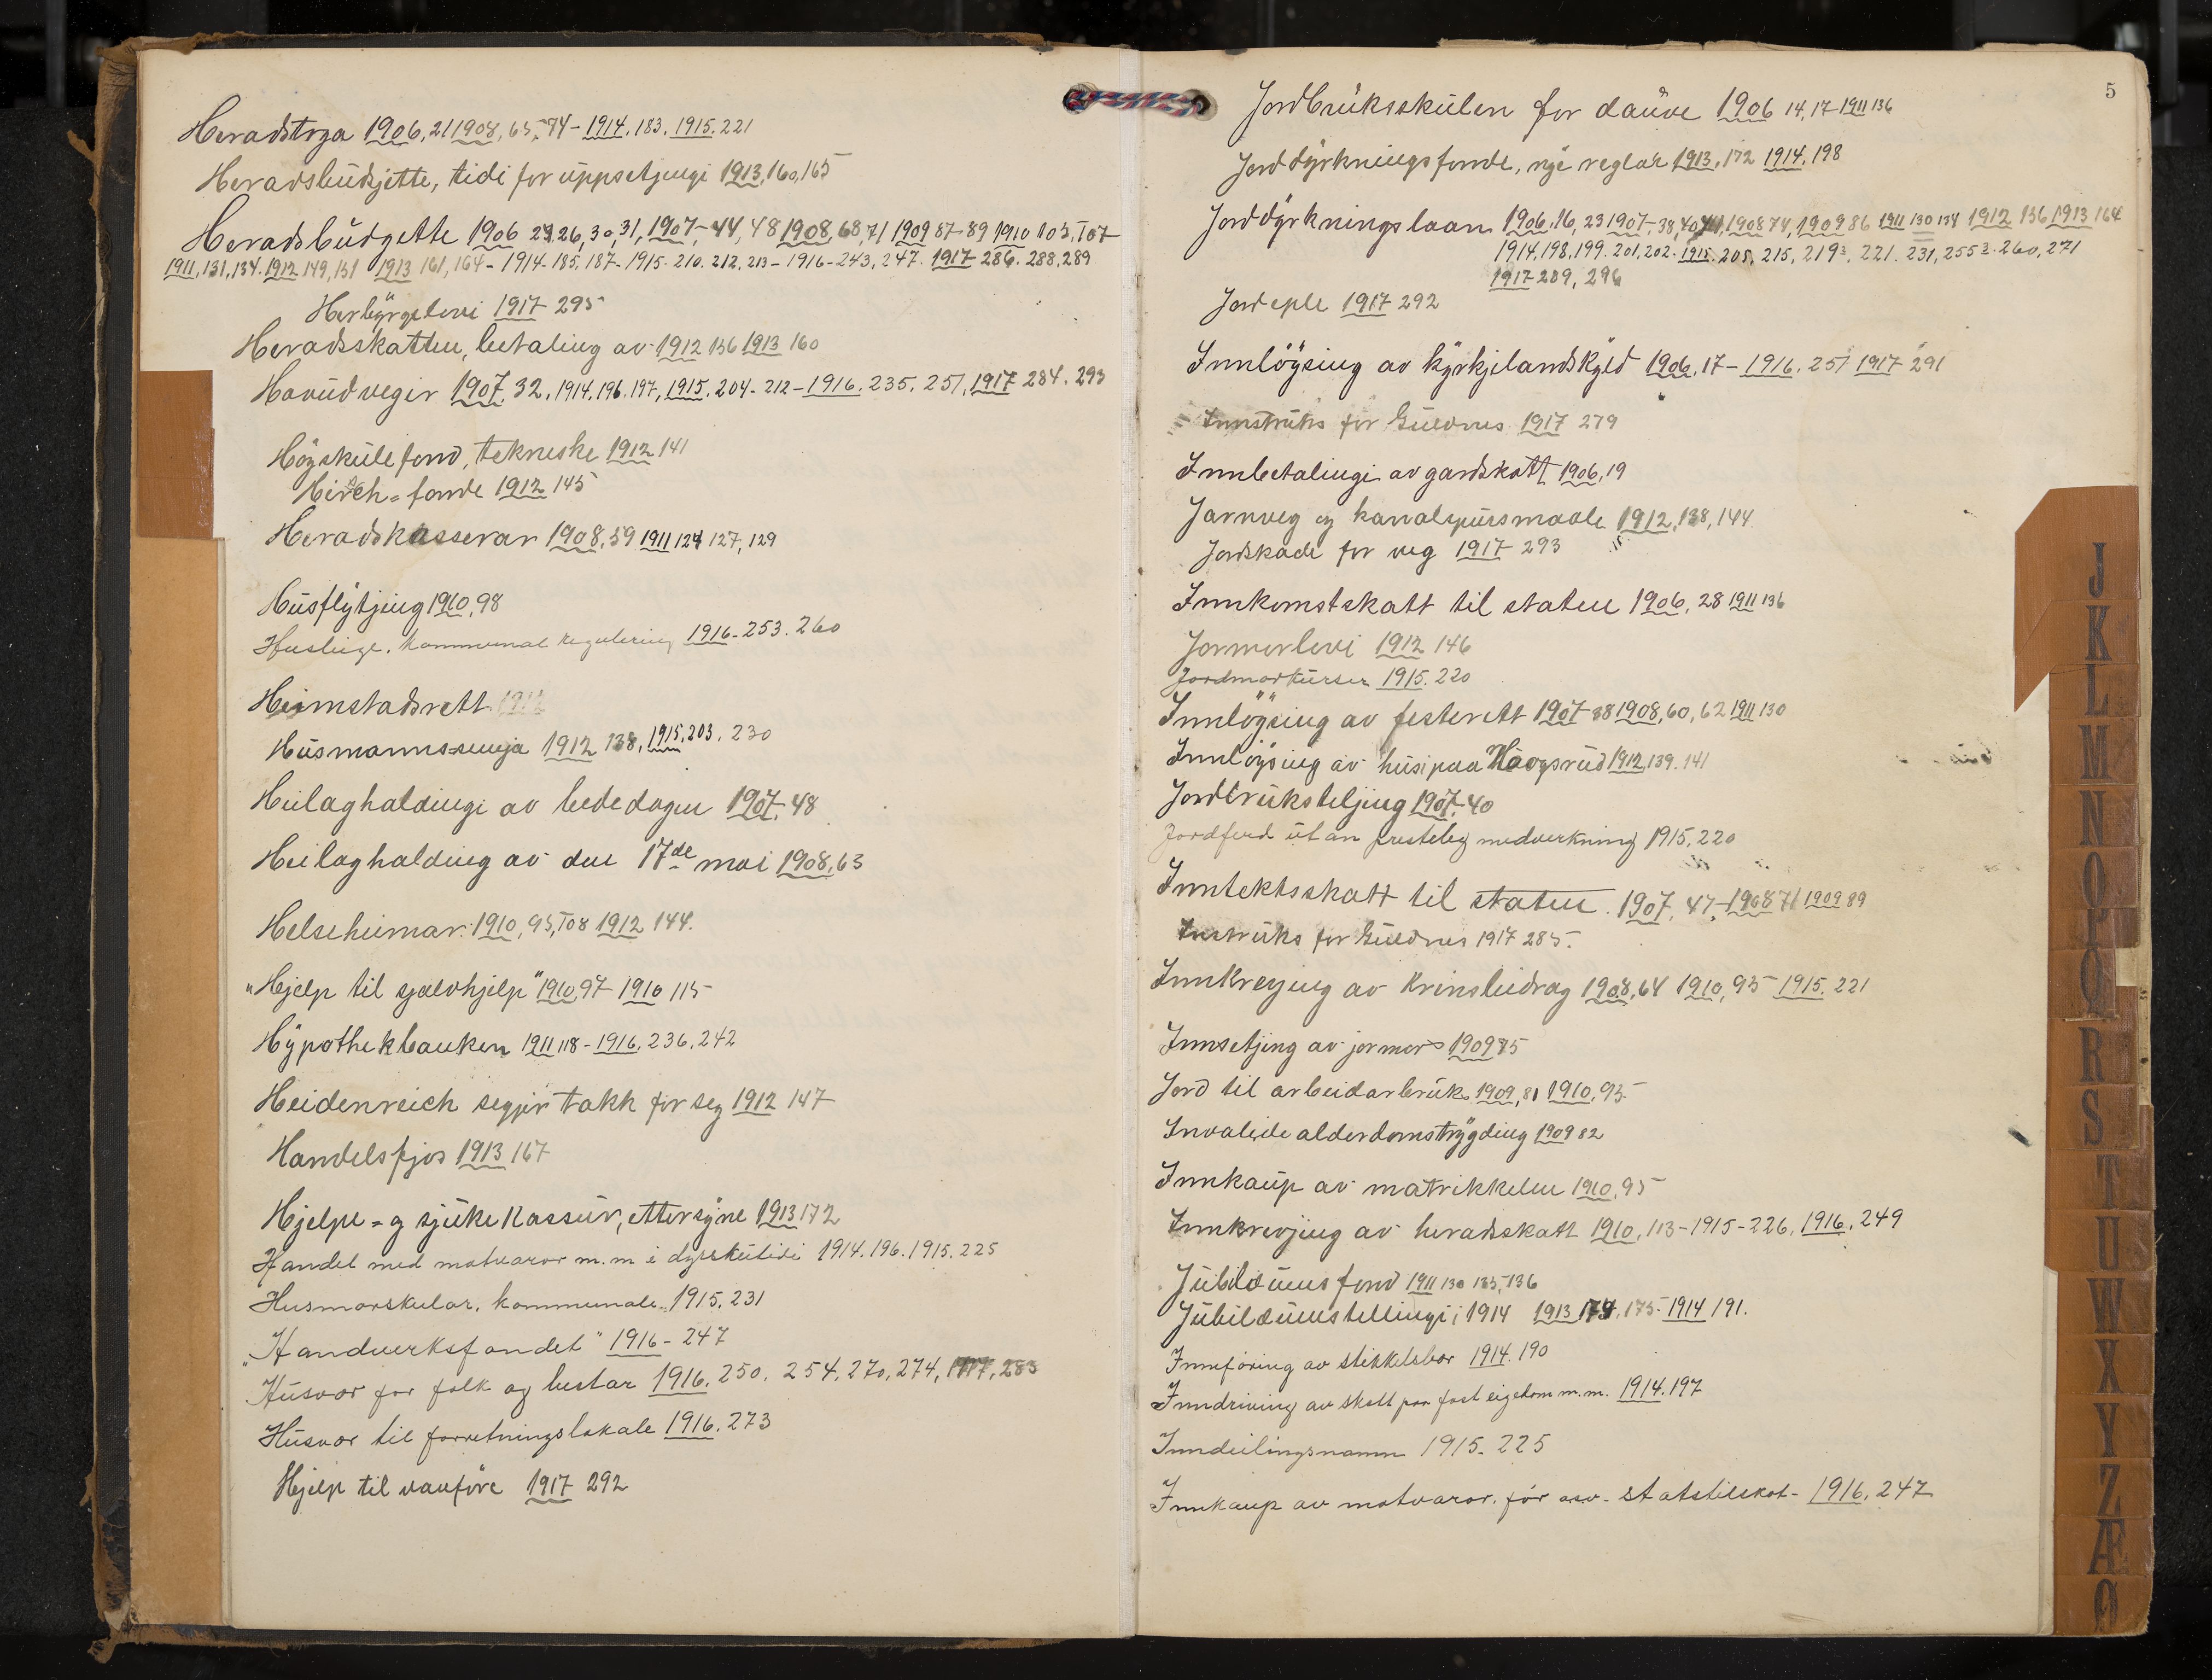 Heradstrga 1906, 21 1908, 65, 74 - 1914. 183. 1915. 221
Heradsbudsjette, tidi for uppsetjingi 1913, 160, 165
Heradsbudgette 1906 23, 26, 30, 31, 1907, 44, 48 1908, 68, 71 1909 87-89 1910 103, 107
1911, 131, 134. 1912 149, 151 1913 161, 164 - 1914. 185, 187 - 1915. 210. 212, 213 - 1916 - 243, 247. 1917 286. 288, 289
Herbyrgelovi 1917 295
Heradsskatten, betaling av 1912 136 1913 160
Hovudvegir 1907, 32. 1914. 196. 197, 1915. 204. 212 - 1916. 235. 251, 1917 284. 293
Högskulefond, tekneske 1912 141
Hirch-fonde 1912 145
Heradskasserar 1908, 59 1911 124 127, 129
Husflytjing 1910, 98
Husleige. kommunal regulering 1916 - 253. 260
Heimstadsrett 1912
Husmannsnemja 1912 138, 1915. 203. 230
Heilaghaldingi av bededagen 1907, 48
Heilaghalding av den 17de mai 1908, 63
Helseheimar 1910, 95, 108 1912 144.
"Hjelp til sjølvhjelp" 1910, 97 - 1910 115
Hypothekbanken 1911 118 - 1916. 236, 242
Heidenreich segjer takk for seg 1912 147
Handelsfjos 1913 167
Hjelpe- og sjuke kassur, ettersyne 1913 172
Handel med matvaror m.m i dyrskutidi 1914. 196. 1915. 225
Husmorskular. kommunale. 1915, 231
"Handverksfondet" 1916 - 247
Husvær for folk og hestar 1916. 250. 254, 270, 274, 1917, 283
Husvær til forretningslokale 1916. 273
Hjelp til vanføre 1917 292
5
Jordbruksskulen for dauve 1906 14, 17 - 1911 136
Jorddyrkningsfonde, nye reglar 1913, 172 1914, 198
Jorddyrkningslaan 1906, 16, 23 1907, 38, 40, 41, 1908 74, 1909 86 1911 130 134 1912 136 1913 164
1914, 198, 199. 201, 202. 1915. 205, 215, 219, 221. 231, 255. 260, 271
1917 289, 296
Jordeple 1917 292
Innlöysing av kyrkjelandskyld 1906, 17 - 1916. 251 1917 291
Innstruks for Guldnes 1917 279
Innbetalingi av gardskatt 1906, 19
Jarnveg og kanalspursmaale 1912, 138, 144
Jordskade for veg 1917 293
Innkomstskatt til staten 1906, 28 1911 136
Jormorlovi 1912 146
Jordmorkurser 1915. 220
Innlöysing av festerett 1907 38 1908, 60, 62 1911 130
Innlöysing av husi paa Haogsrud 1912, 139. 141
Jordbruksteljing 1907, 40
Jordferd utan presteleg medverkning 1915, 220
Inntektsskatt til staten 1907, 47, - 1908 71 1909 89
Instruks for Guldnes 1917 285.
Innkrevjing av krinsbidrag 1908, 64 1910, 95 1915. 221
Innsetjing av jormor 1909 75
Jord til arbeidarbruk 1909, 81 1910, 95
Invalide alderdomstrygding 1909 82
Innkaup av matrikkelen 1910, 95
Innkrevjing av heradskatt 1910, 113 - 1915 - 226. 1916. 249
Jubilæumsfond 1911 130 135, 136
Jubilæumstellingi i 1914 1913 174, 175 - 1914 191.
Innföring av stikkelsbær 1914. 190
Inndriving av skatt paa fast eigedom m.m. 1914. 197
Inndeilingsnamn 1915. 225
Innkaup av matvaror. fór osv. statstilskot - 1916. 247
J
K
L
M
N
O
P
Q
R
S
T
U
W
X
Y
Z
Æ
Ø